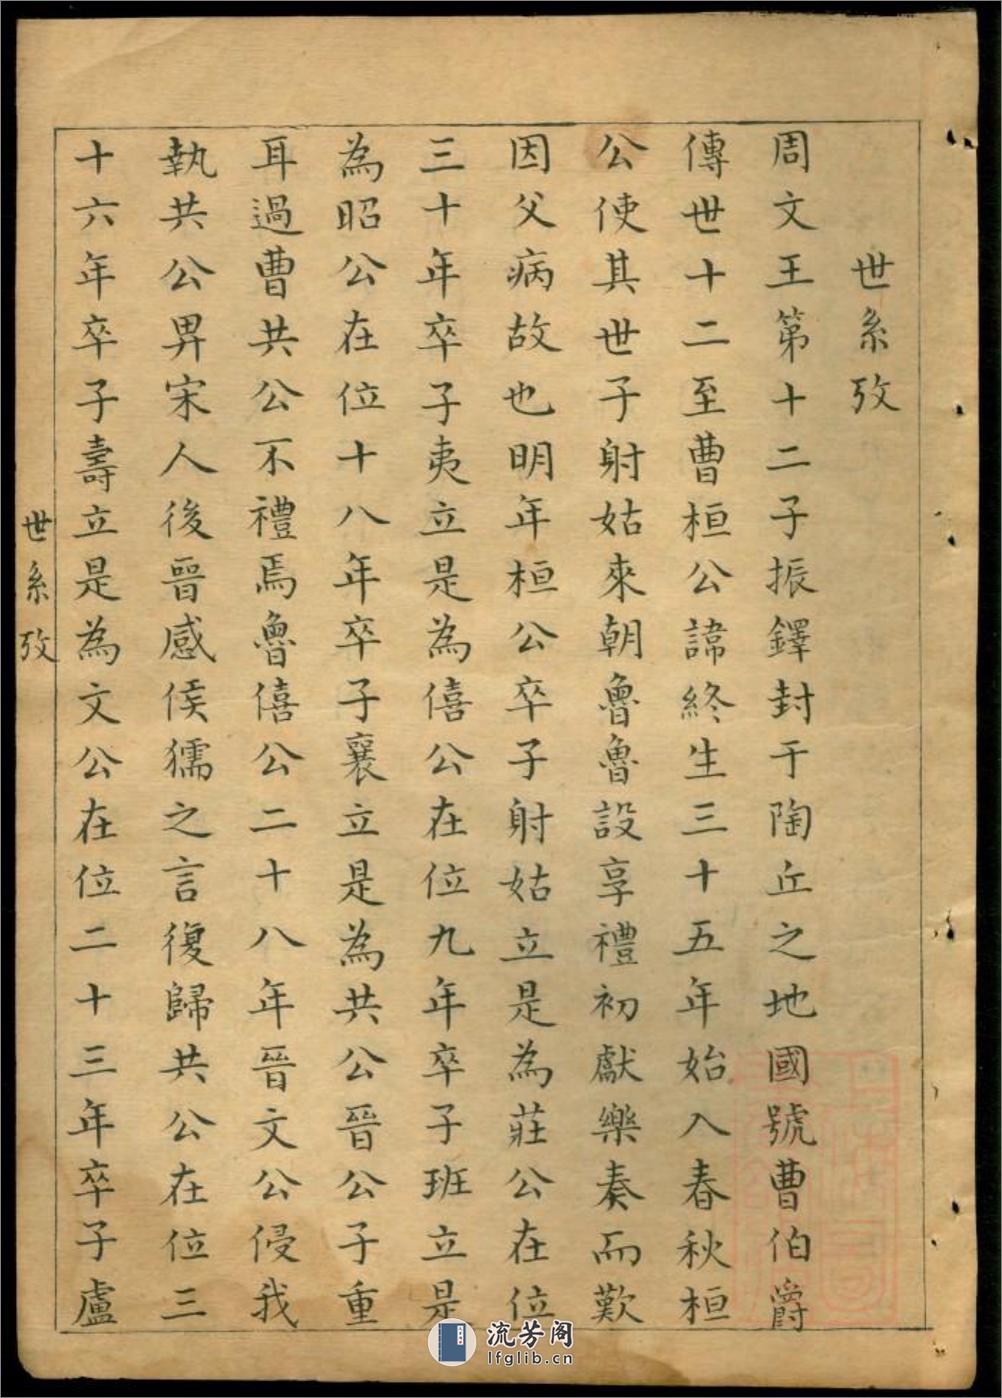 世系攷
周文王第十二子振鐸封于陶丘之地國號曹伯爵
傳世十二至曹桓公諱終生三十五年始入春秋桓
公使其世子射姑來朝魯魯設享禮初獻樂奏而歎
因父病故也明年桓公卒子射姑立是為莊公在位
三十年卒子夷立是為僖公在位九年卒子班立是
為昭公在位十八年卒子襄立是為共公晉公子重
耳過曹共公不禮焉魯僖公二十八年晉文公侵我
執共公畀宋人後晉感侯獳之言復歸共公在位三
十六年卒子壽立是為文公在位二十三年卒子盧
世系攷
流芳阁
lfglib.cn